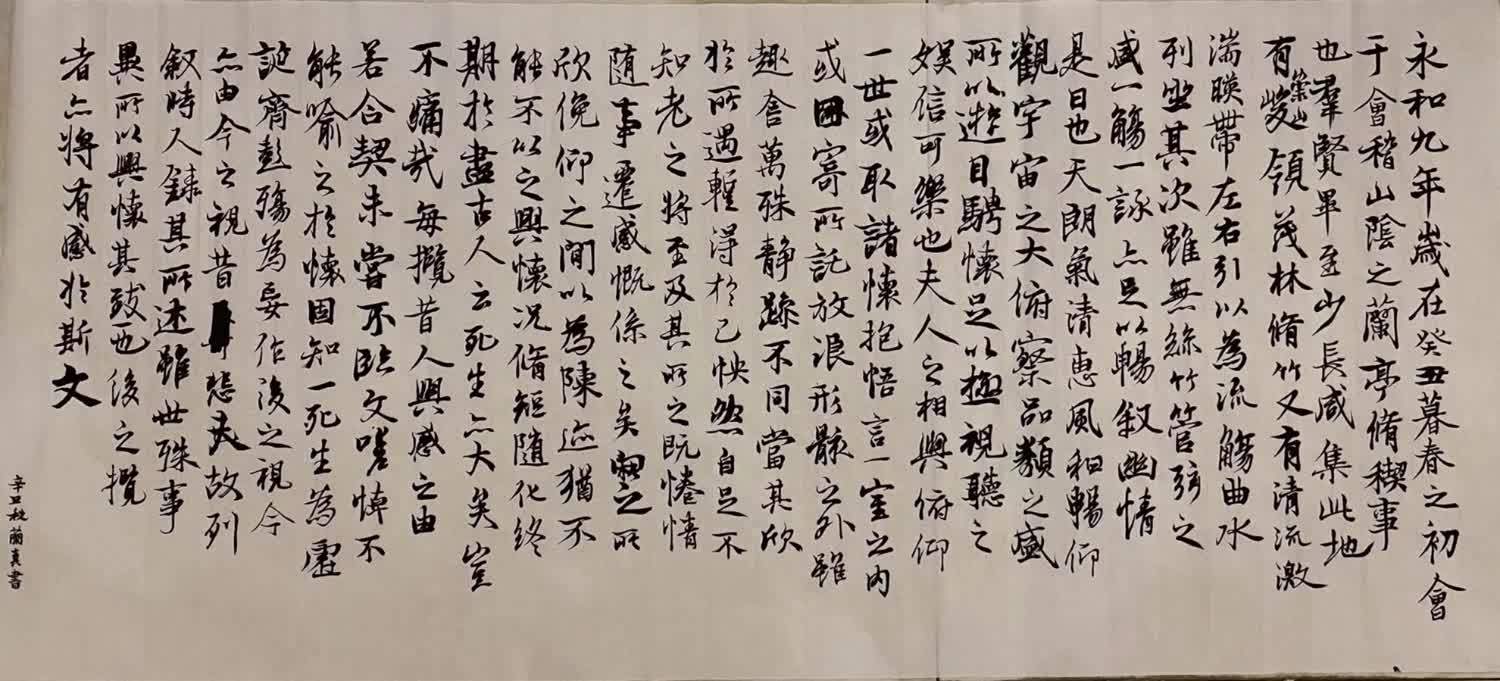 永和九年歲在癸丑暮春之初會
于會稽山陰之蘭亭脩稧事
也羣賢畢至少長咸集此地
有崇山峻領茂林脩竹又有清流激
湍暎帶左右引以為流觴曲水
列坐其次雖無絲竹管弦之
盛一觴一詠亦足以暢敘幽情
是日也天朗氣清惠風和暢仰
觀宇宙之大俯察品類之盛
所以遊目騁懷足以極視聽之
娛信可樂也夫人之相與俯仰
一世或取諸懷抱悟言一室之內
或因寄所託放浪形骸之外雖
趣舍萬殊静躁不同當其欣
於所遇暫得於己怏然自足不
知老之將至及其所之既惓情
随事遷感慨係之矣向之所
欣俛仰之間以為陳迹猶不
能不以之興懷況脩短随化終
期於盡古人云死生亦大矣豈
不痛哉每攬昔人興感之由
若合一契未嘗不臨文嗟悼不
能喻之於懷固知一死生為虛
誕齊彭殤為妄作後之視今
亦由今之視昔悲夫故列
敘時人錄其所述雖世殊事
異所以興懷其致一也後之攬
者亦將有感於斯文
辛丑秋蘭真書